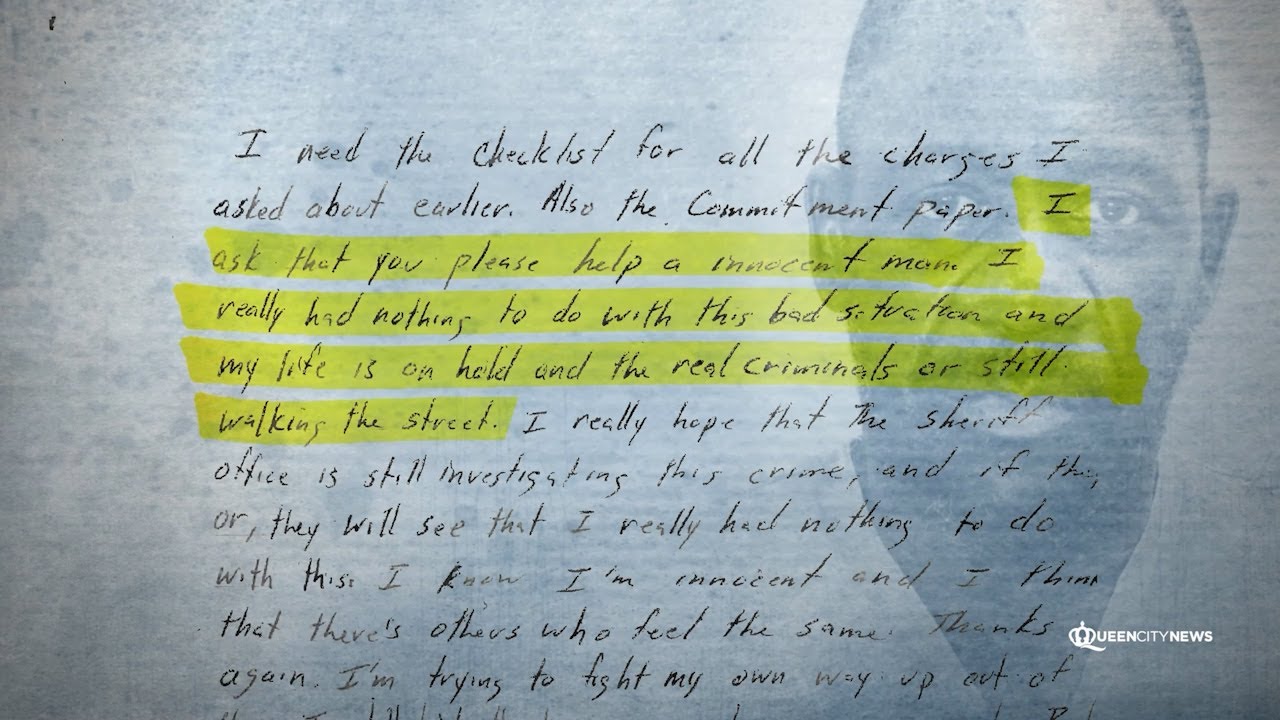 I need the checklist for all the charges I
asked about earlier. Also the Commitment paper. I
ask that you please help a innocent man. I
really had nothing to do with this bad situation and
my life is on hold and the real criminals or still
walking the street. I really hope that The sheriff
office is still investigating this crime, and if the,
or, they will see that I really had nothing to do
with this. I know I'm innocent and I think
that there's others who feel the same. Thanks
again. I'm trying to fight my own way up out of
QUEEN CITY NEWS